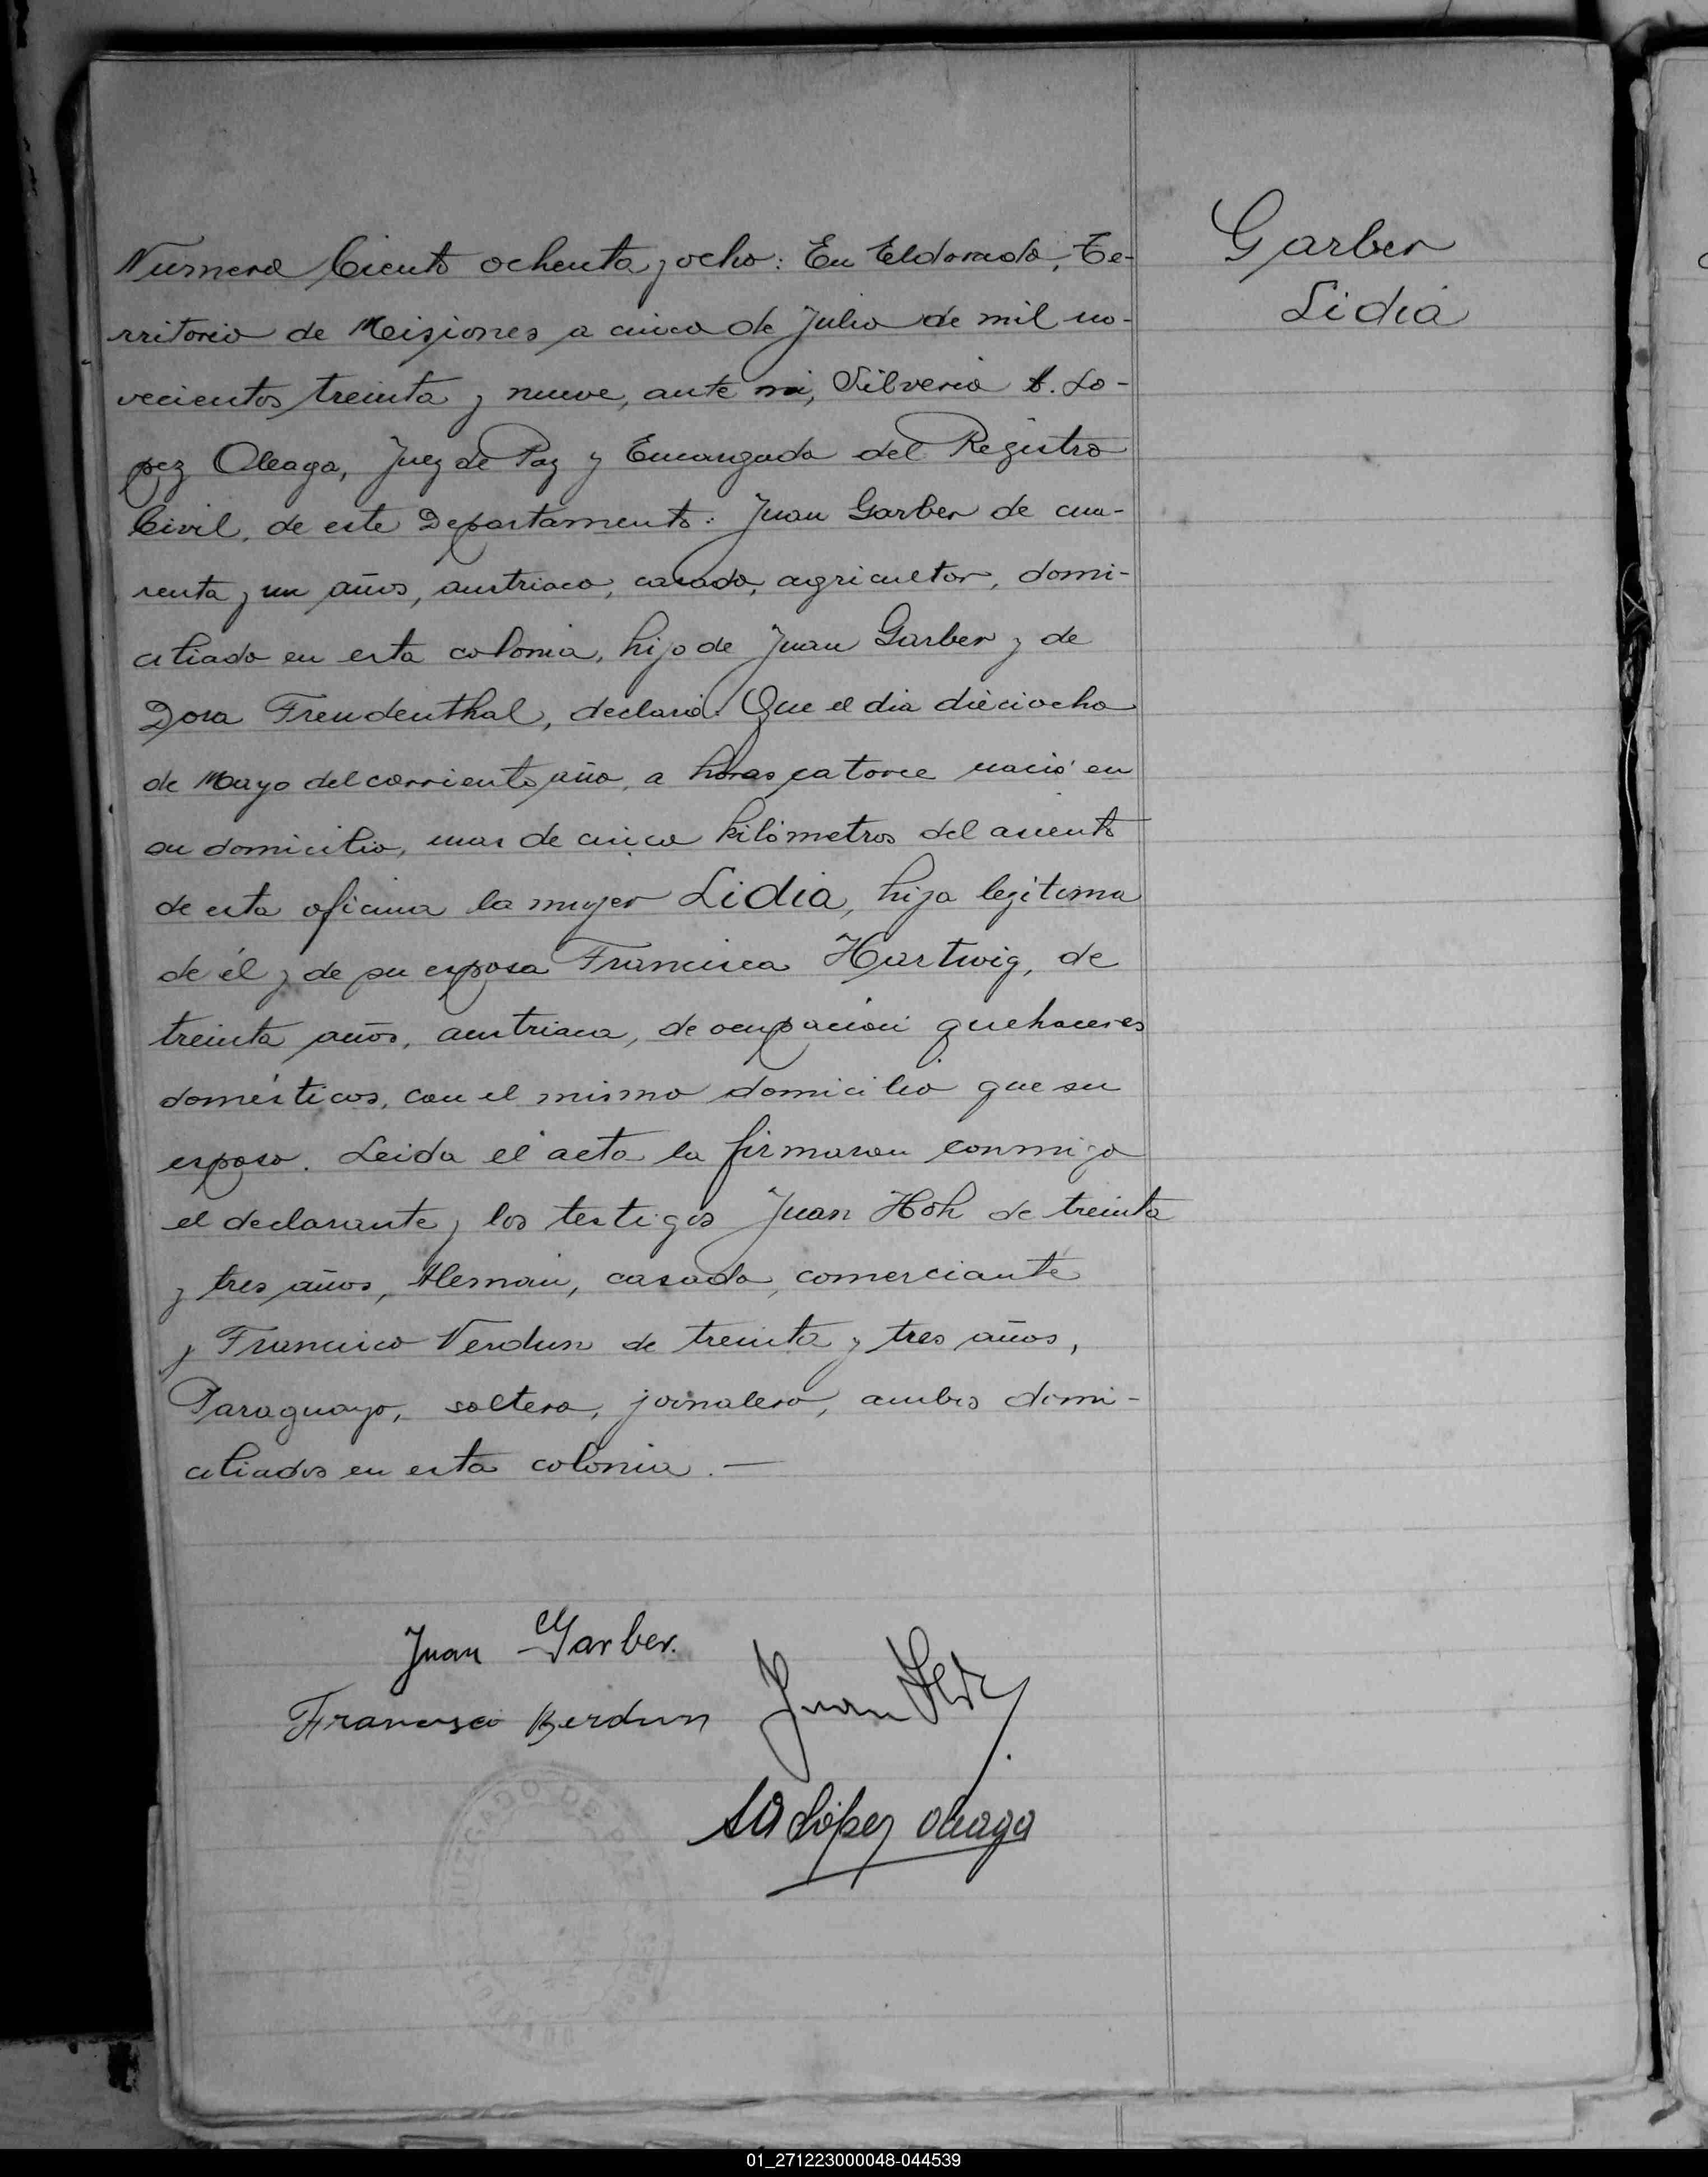 Garber
Lidia
Numero Ciento ochenta y ocho: En Eldorado, Te-
rritorio de Misiones a cinco de Julio de mil no-
vecientos treinta y nueve, ante mi, Silverio A. Lo-
pez Oleaga, Juez de Paz y Encargado del Registro
Civil, de este Departamento: Juan Garber de cua-
renta y un años, austriaco, casado, agricultor, domi-
ciliado en esta colonia, hijo de Juan Garber y de
Dora Freudenthal, declaró: Que el dia dieciocho
de Mayo del corriente año, a horas catorce nació en
su domicilio, mas de cinco kilómetros del asiento
de esta oficina la mujer Lidia, hija legitima
de él y de su esposa Francisca Hartwig, de
treinta años, austriaca, de ocupación quehaceres
domésticos, con el mismo domicilio que su
esposo. Leida el acta la firmaron conmigo
el declarante y los testigos Juan Höh de treinta
y tres años, Aleman, casado, comerciante
y Francisco Verdun de treinta y tres años,
Paraguayo, soltero, jornalero, ambos domi-
ciliados en esta colonia.—
Juan Garber.
Francisco Berdun Juan
SA López Oleaga
JUZGADO DE PAZ
01_271223000048-044539